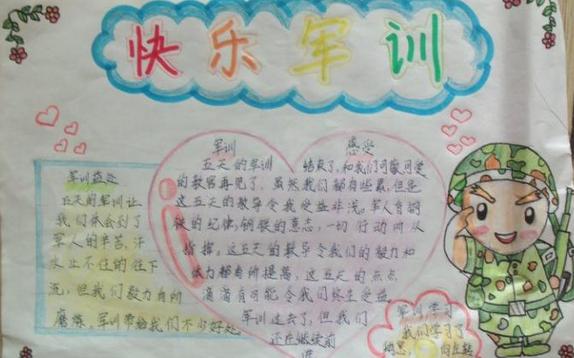 快乐军训
军训益处
五天的军训让
我们体会到了
军人的辛苦,汗
水止不住的往下
流,但我们毅力有所
磨炼,军训带给我们不少好处
军训 感受
五天的军训 结束了,和我们可敬可爱
的教官再见了,虽然我们都有些累,但是
这五天的教导令我受益非浅。军人有钢
铁的纪律,钢铁的意志,一切行动听从
指挥。这五天的教导令我们的毅力和
体力都有所提高,这五天的点点
滴滴有可能令我们终生受益
军训过去了,但我们
还在继续前
进
军训学习
我们学习了